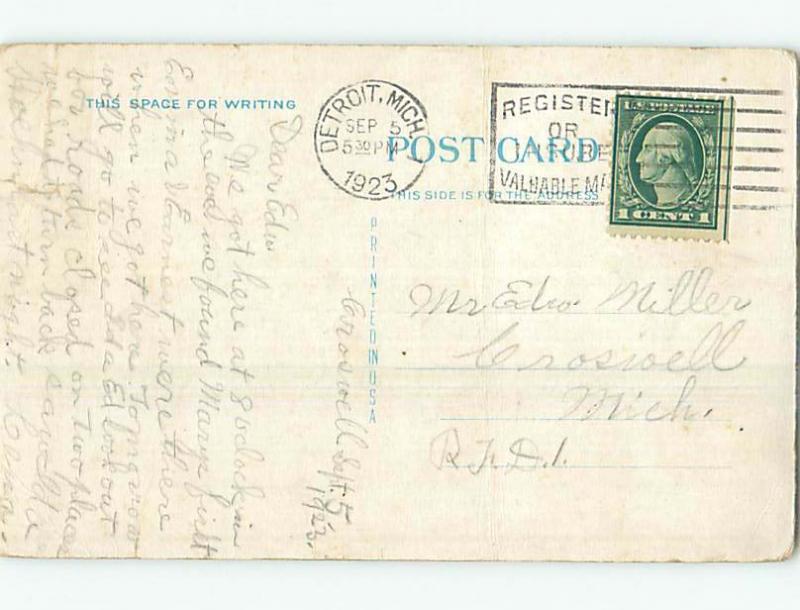 THIS SPACE FOR WRITING
DETROIT, MICH.
SEP 5
5 30 PM
1923
REGISTER
OR
INSURE
VALUABLE MA
U.S. POSTAGE
1 CENT 1
POST CARD
THIS SIDE IS FOR THE ADDRESS
PRINTED IN USA
Mr Edw. Miller
Croswell
Mich.
R.F.D.1.
Croswell Sept. 5
1923.
Dear Edw
We got here at 8 oclock in
the eve we found Marys first
Emma & Earnest were there
when we got here. Tomorrow
will go to see Ed look out
for roads closed on two places
we had to turn back saw
last night.